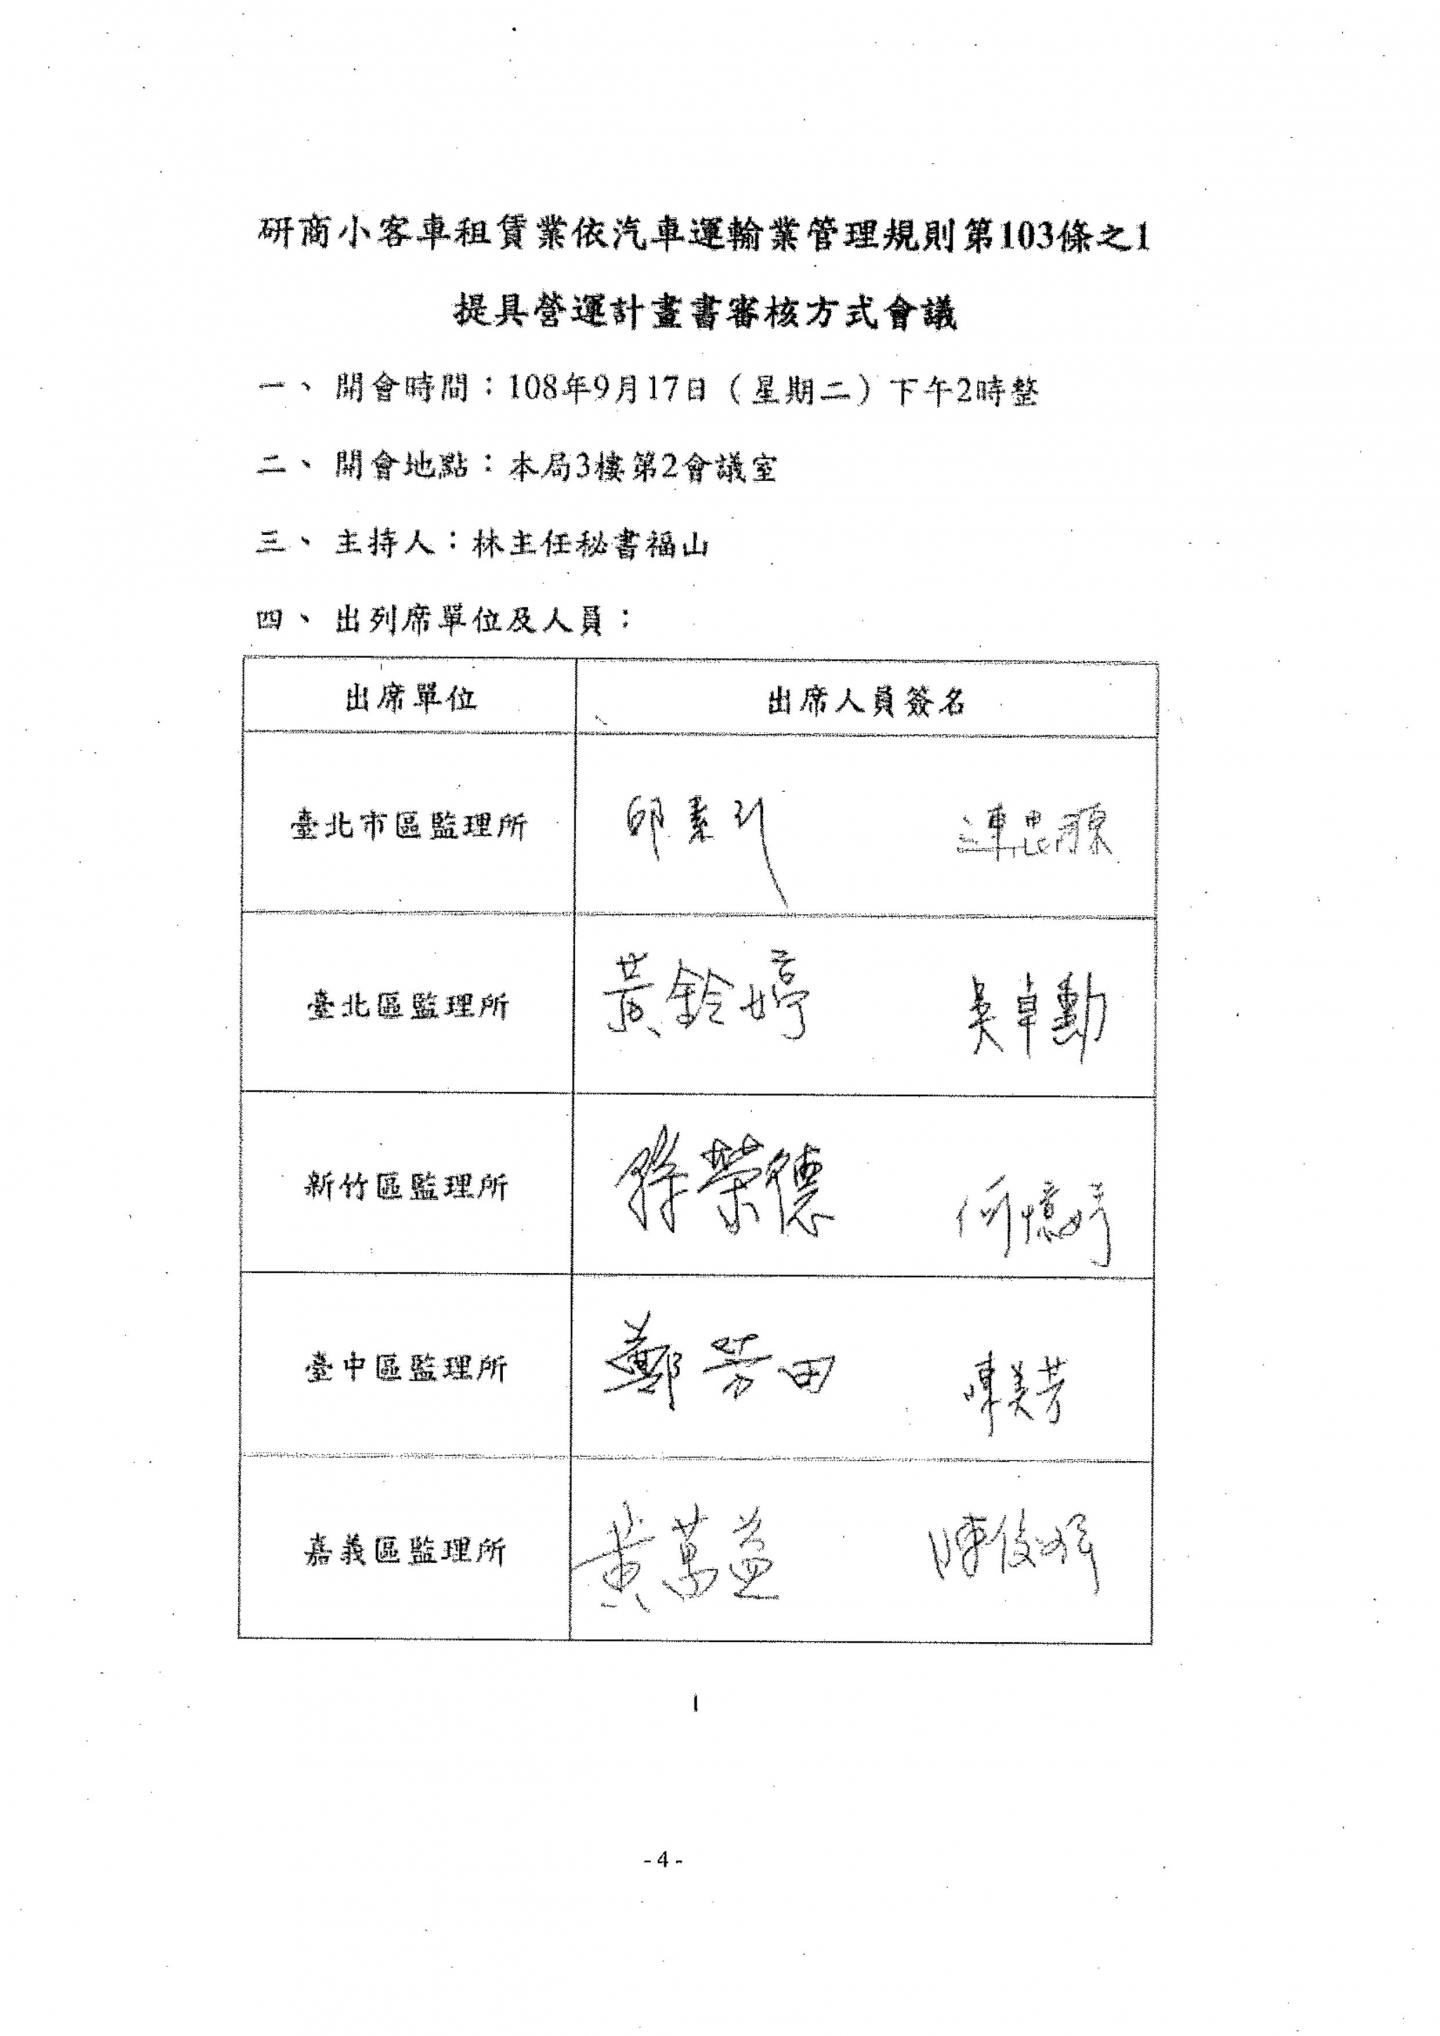 研商小客車租賃業依汽車運輸業管理規則第103條之1
提具營運計畫書審核方式會議
一、 開會時間：108年9月17日（星期二）下午2時整
二、 開會地點：本局3樓第2會議室
三、 主持人：林主任秘書福山
四、 出列席單位及人員：
出席單位 出席人員簽名
臺北市區監理所 邱素 連忠
臺北區監理所 黃鈴婷 吳卓勳
新竹區監理所 徐榮德 何憶婷
臺中區監理所 鄭芳田 陳美芳
嘉義區監理所 黃萬益 陳俊
1
- 4 -